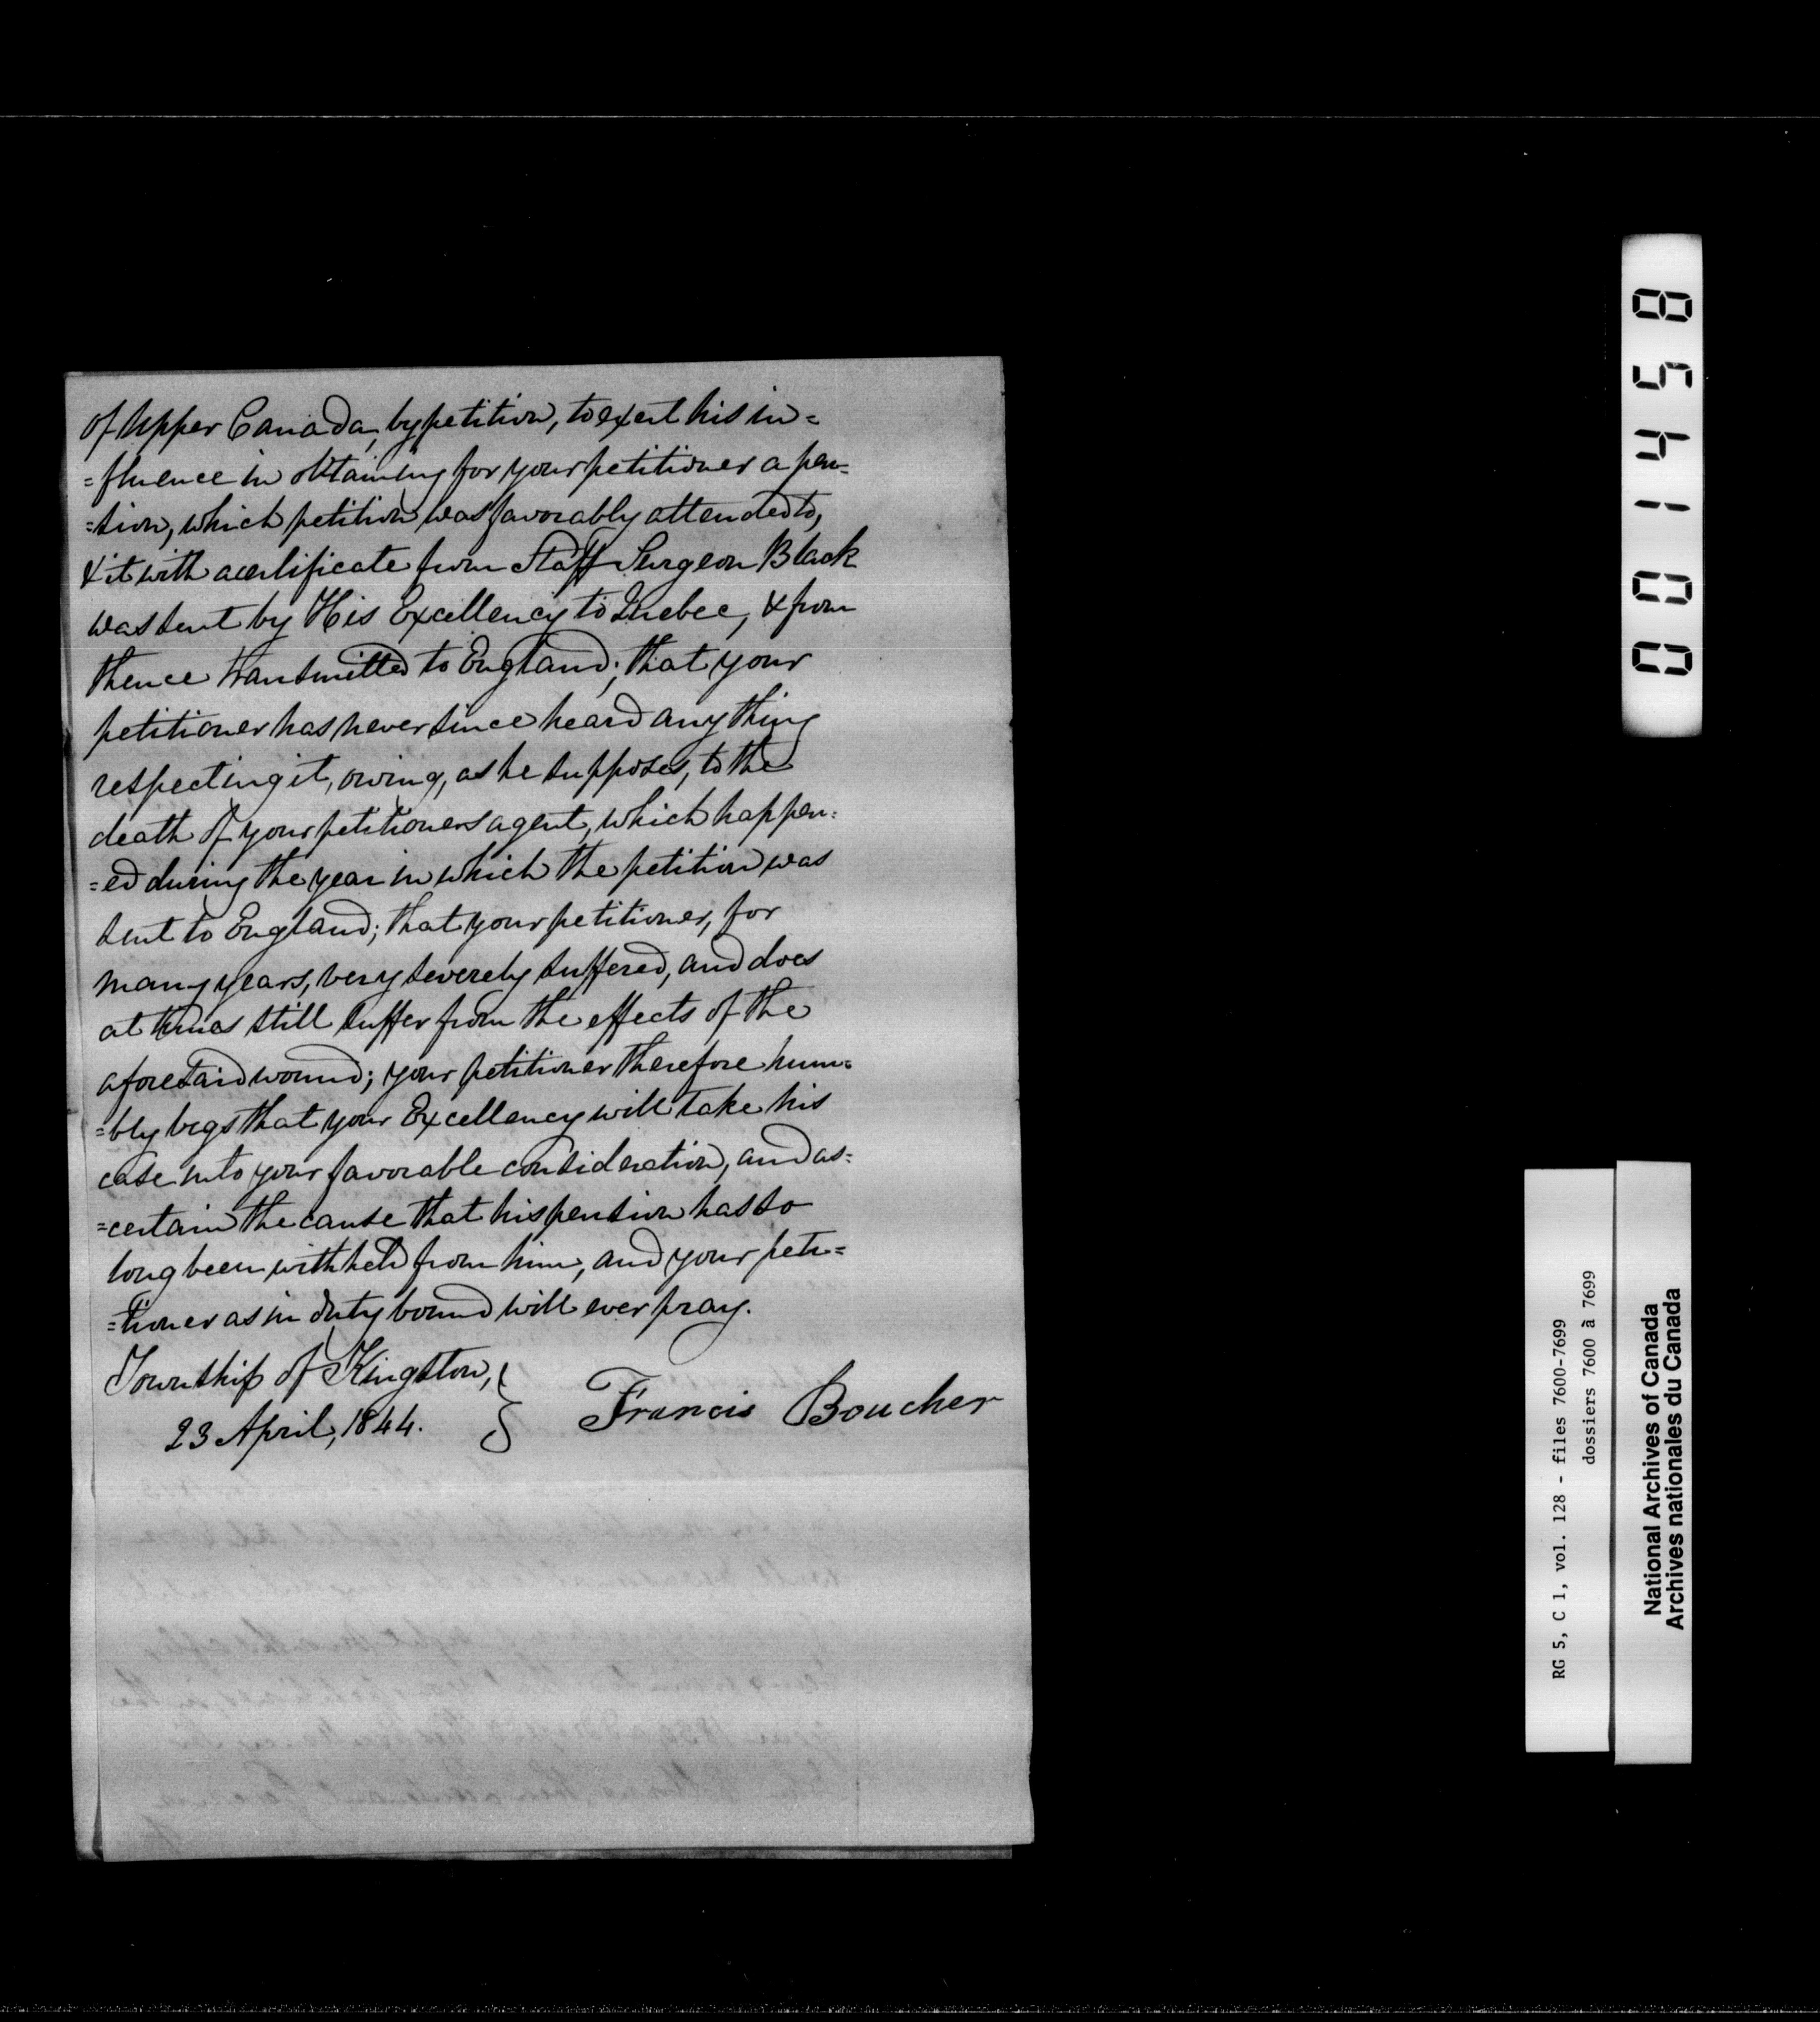 of Upper Canada, by petition, to exert his in=
=fluence in obtaining for your petitioner a pen=
=sion, which petition was favorably attended to,
& it with a certificate from Staff Surgeon Black
was sent by His Excellency to Quebec, & from
thence transmitted to England; that your
petitioner has never since heard any thing
respecting it, owing, as he supposes, to the
death of your petitioners agent, which happen=
=ed during the year in which the petition was
sent to England; that your petitioner, for
many years, very severely suffered, and does
at times still suffer from the effects of the
aforesaid wound; your petitioner therefore hum=
=bly begs that your Excellency will take his
case into your favorable consideration, and as=
=certain the cause that his pension has so
long been withheld from him, and your peti=
=tioner as in duty bound will ever pray.
Township of Kingston,
23 April, 1844.
Francis Boucher
001458
RG 5, C 1, vol. 128 - files 7600-7699
dossiers 7600 à 7699
National Archives of Canada
Archives nationales du Canada